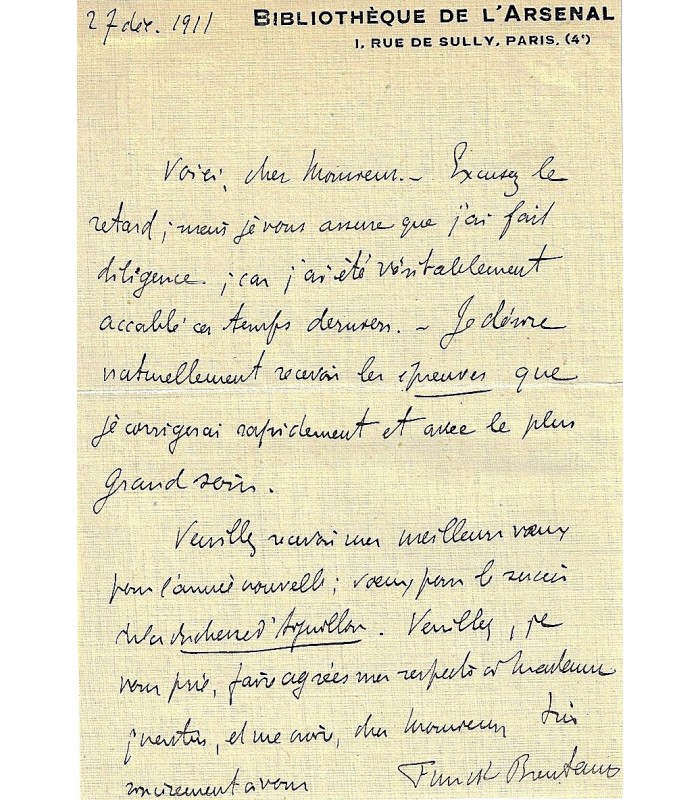 27 déc. 1911
BIBLIOTHÈQUE DE L'ARSENAL
1, RUE DE SULLY, PARIS, (4e)
Voici, cher Monsieur. – Excusez le
retard ; mais je vous assure que j'ai fait
diligence ; car j'ai été véritablement
accablé ces temps derniers. – Je désire
naturellement recevoir les épreuves que
je corrigerai rapidement et avec le plus
grand soin.
Veuillez recevoir mes meilleurs vœux
pour l'année nouvelle ; vœux pour le succès
de la duchesse d'Aiguillon. Veuillez, je
vous prie, faire agréer mes respects à Madame
et me croire, cher Monsieur, très
sincèrement à vous
Funck Brentano